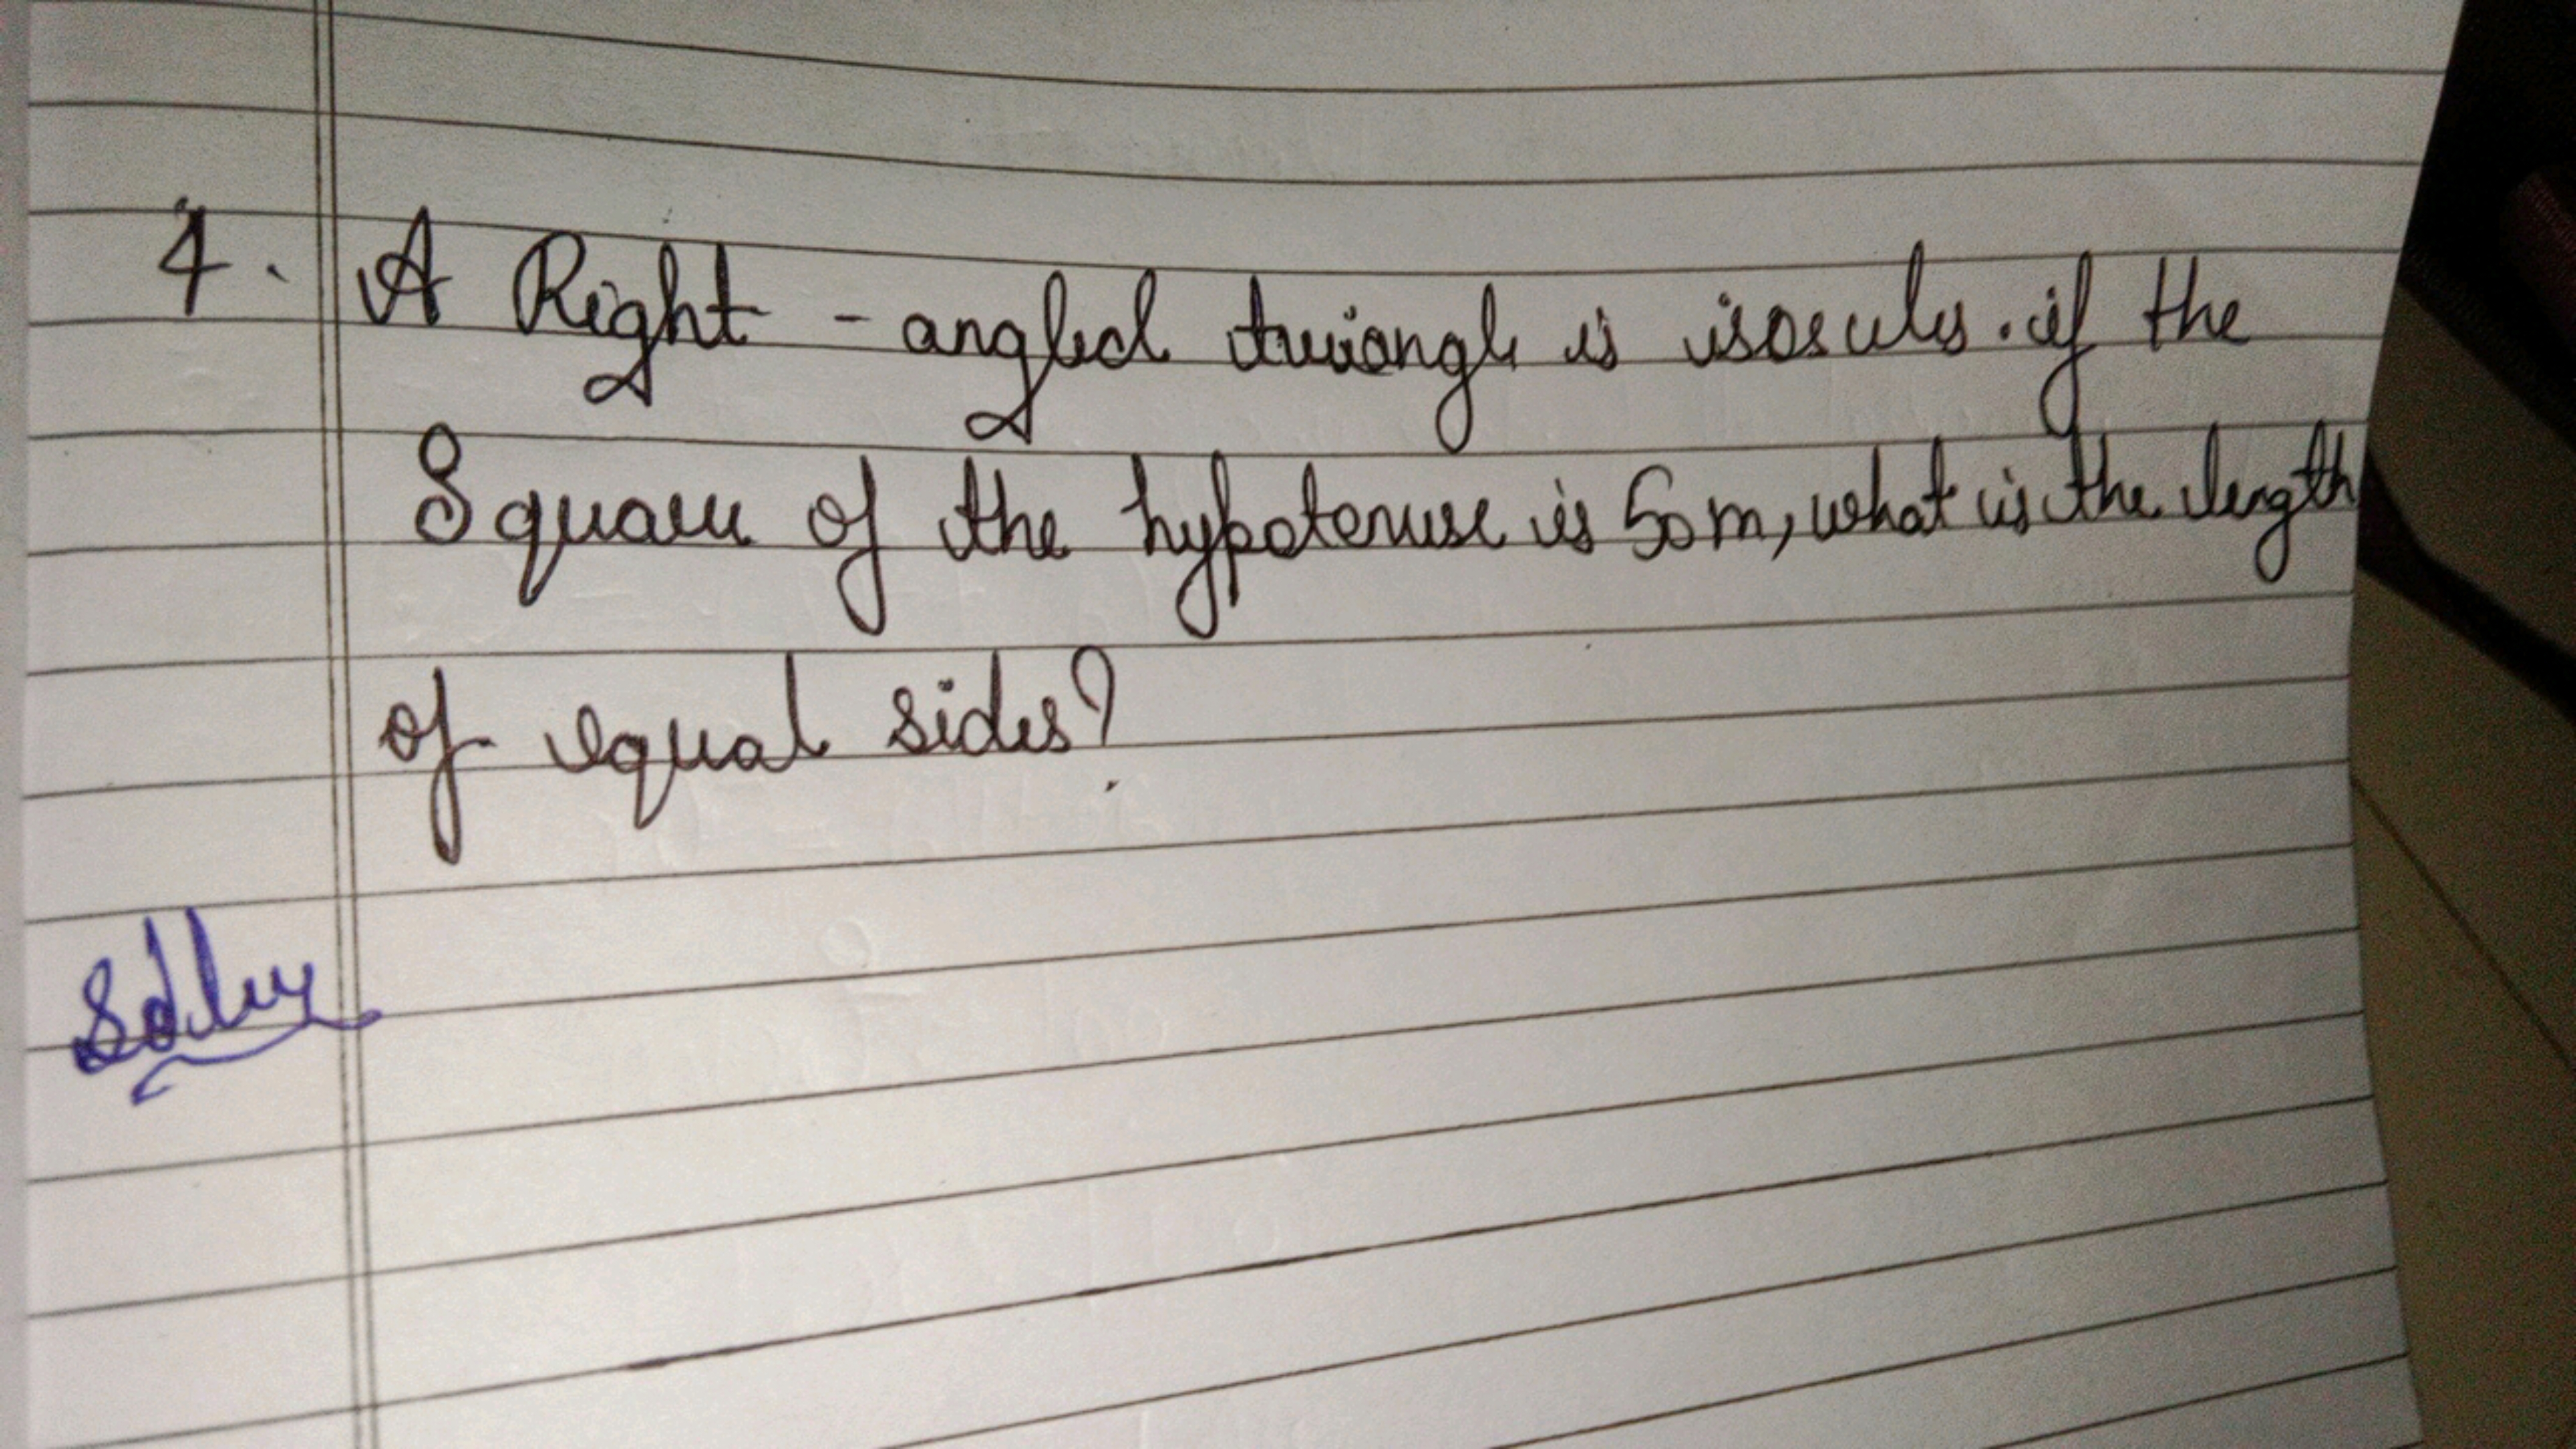 4. A Right - angled triangle is isosceles. if the
Square of the hypotenuse is 50m, what is the length
of equal sides?